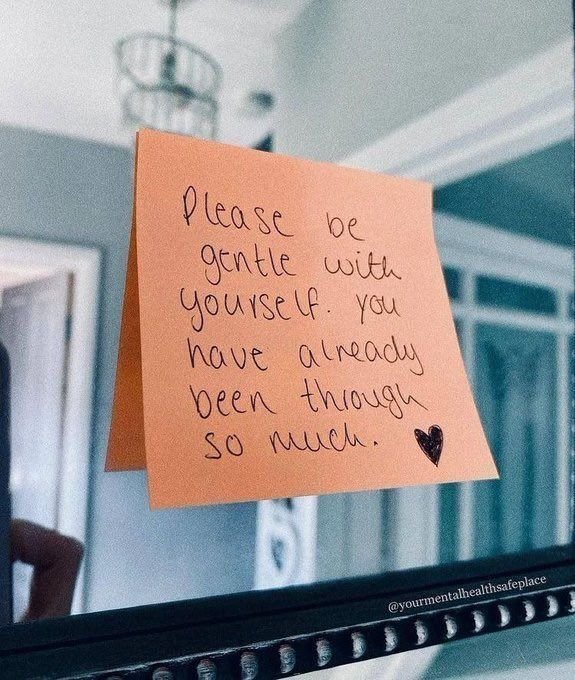 Please be
gentle with
yourself. you
have already
been through
so much. ♥
@yourmentalhealthsafeplace